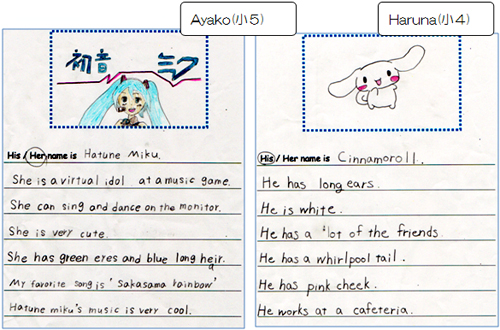 Ayako(小5)
初音ミク
His / Her name is Hatune Miku.
She is a virtual idol at a music game.
She can sing and dance on the monitor.
She is very cute.
She has green eyes and blue long heir.
a
My favorite song is 'Sakasama rainbow'
Hatune miku's music is very cool.
Haruna(小4)
His / Her name is Cinnamoroll.
He has long ears.
He is white.
He has a lot of the friends.
He has a whirlpool tail.
He has pink cheek.
He works at a cafeteria.